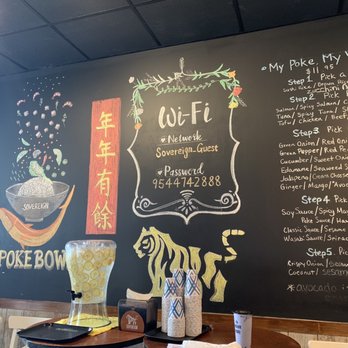 SOVEREIGN
POKE BOW
年年有餘
Wi-Fi
Network
Sovereign_Guest
Password
9544742888
My Poke, My
$11.95
Step 1 Pick a
Step 2 Pick
Salmon / Spicy Salmon /
Tuna / Spicy Tuna /
Tofu / Chicken / Beef
Step 3 Pick
Green Onion / Red Onion
Green Pepper / Red Pe
Cucumber / Sweet Oni
Edamame / Seaweed S
Jalapeno / Corn
Ginger / Mango / Avo
Step 4 Pick
Soy Sauce / Spicy May
Poke Sauce /
Classic Sauce / Sesame
Wasabi Sauce / Srirac
Step 5 Pick
Crispy Onion /
Coconut / Sesam
*avocado